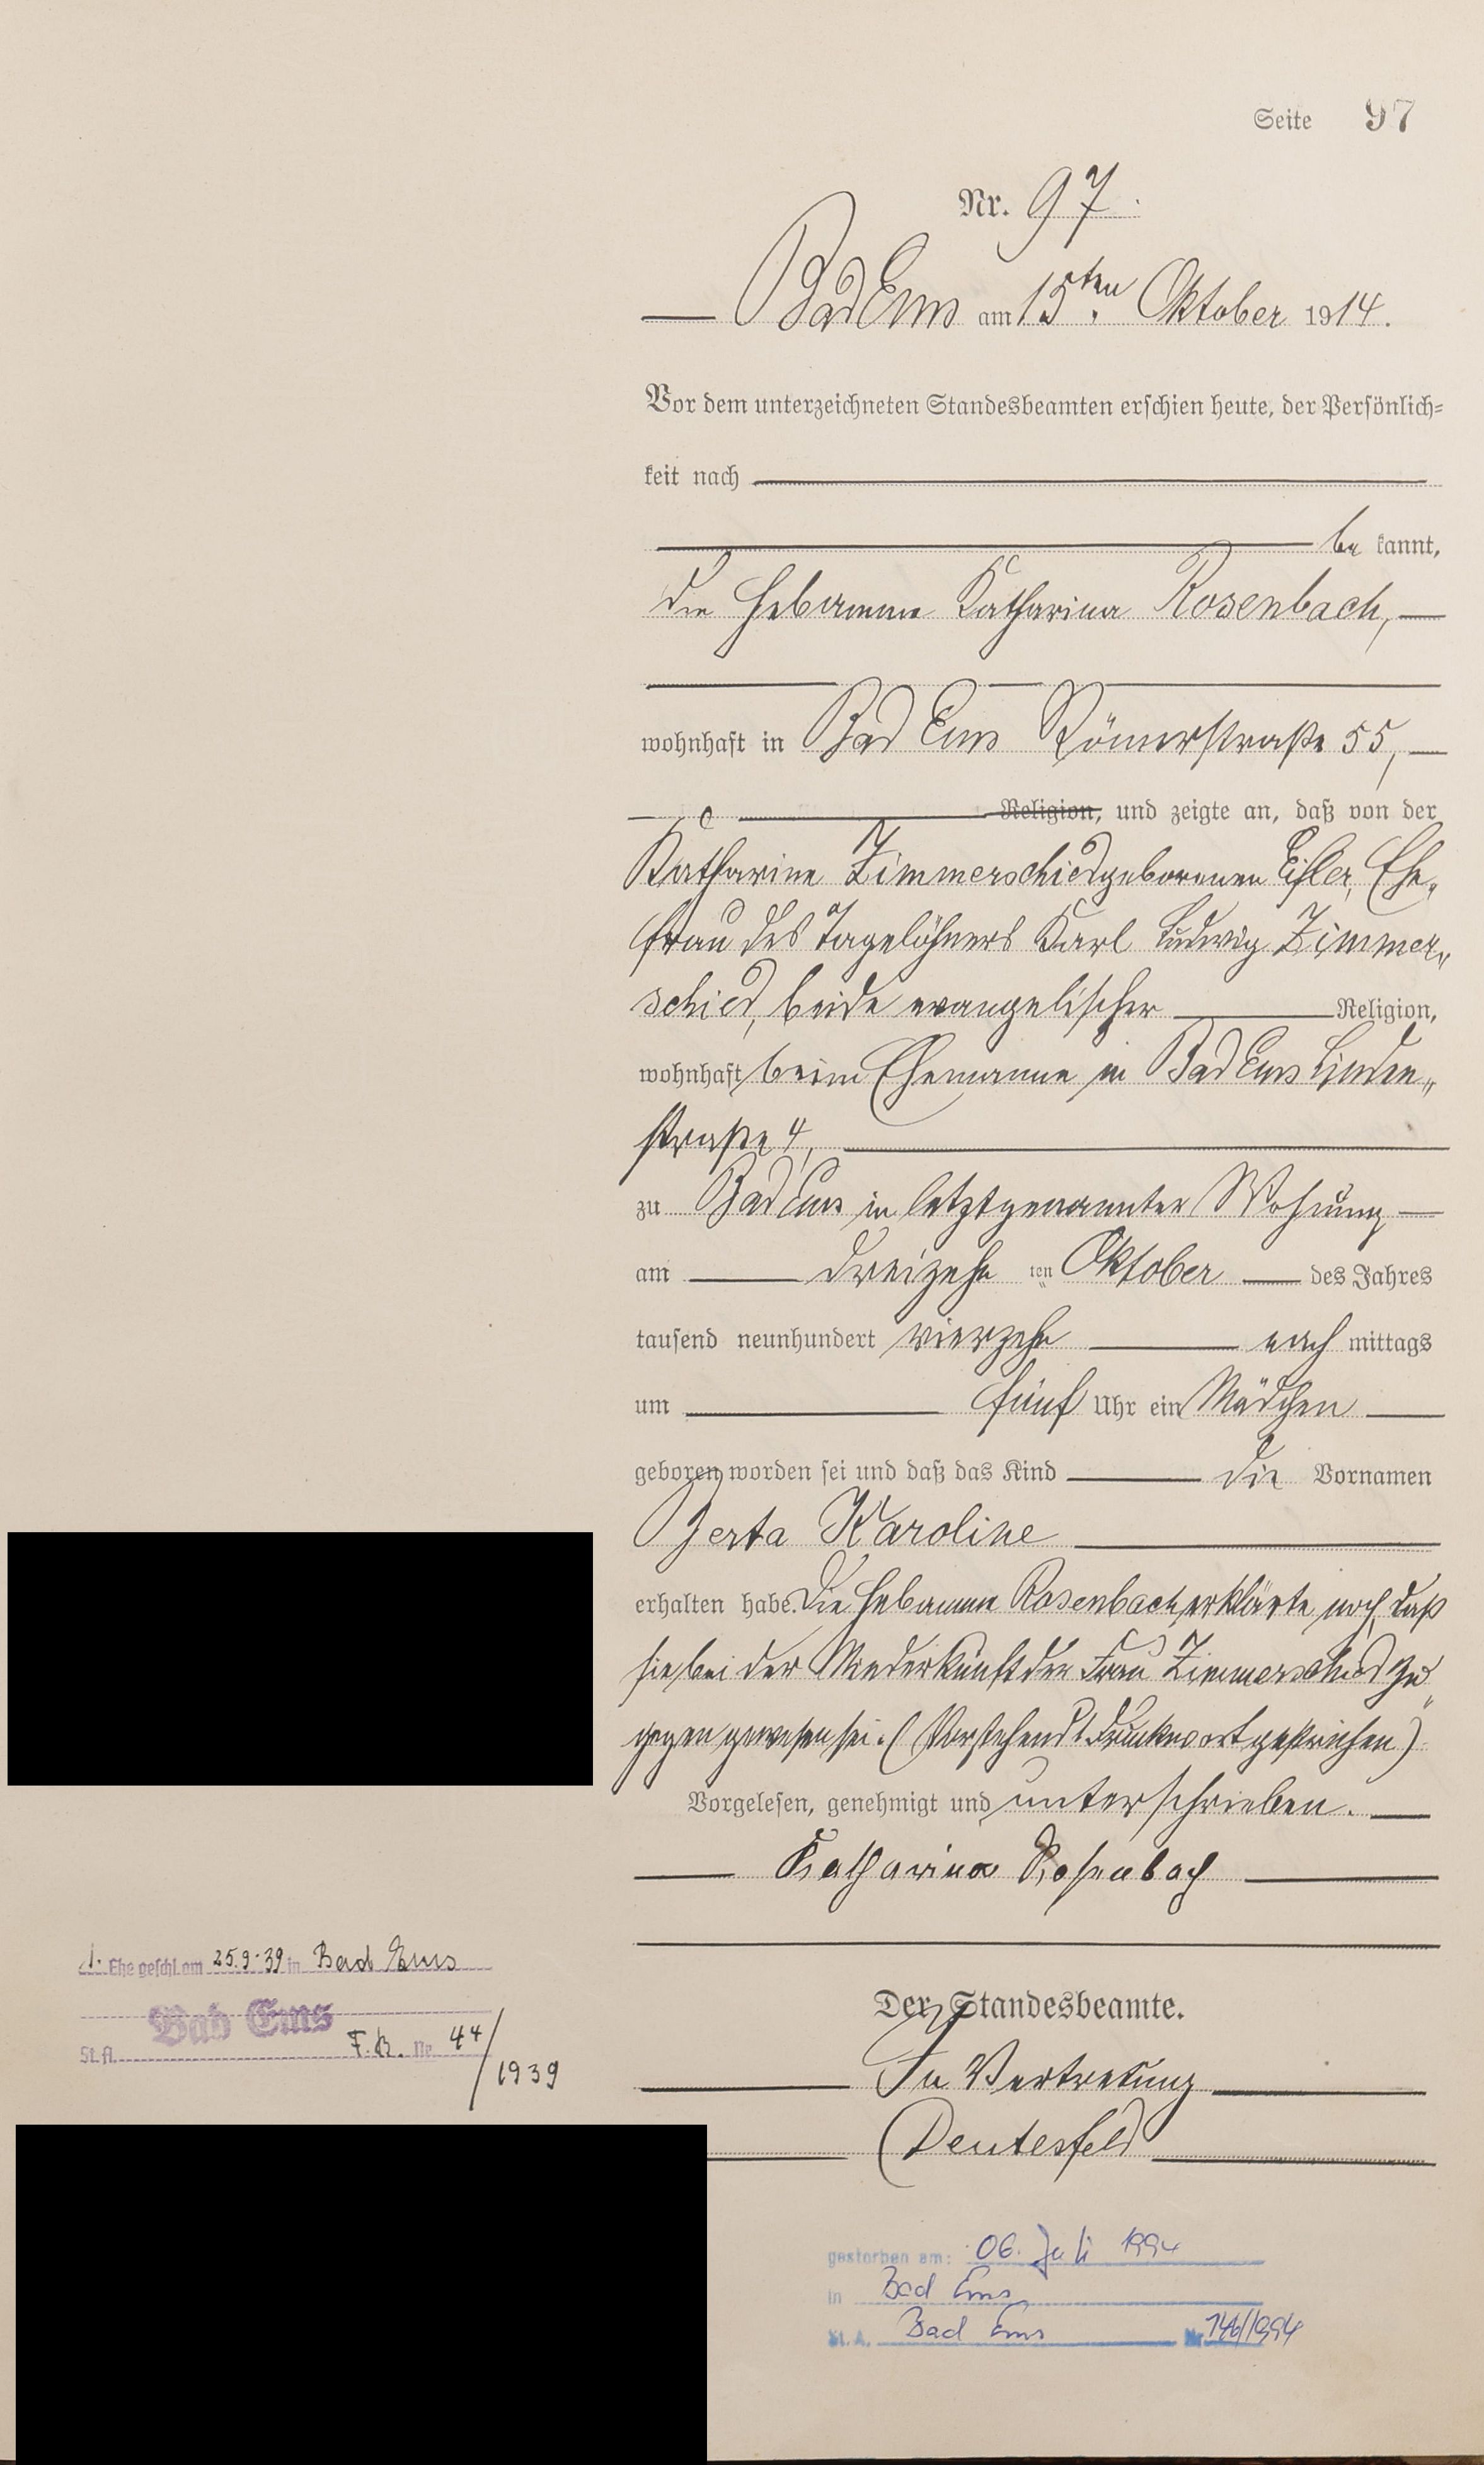 Seite 97
Nr. 97.
Bad Ems am 15ten Oktober 1914.
Vor dem unterzeichneten Standesbeamten erschien heute, der Persönlich-
keit nach
be kannt,
die Hebamme Katharina Rosenbach,
wohnhaft in Bad Ems Römerstraße 55,
Religion, und zeigte an, daß von der
Katharine Zimmerschied geborenen Eisler, Ehe-
frau des Tagelöhners Karl Ludwig Zimmer-
schied, beide evangelischer Religion,
wohnhaft beim Ehemanne in Bad Ems Linden-
straße 4,
zu Bad Ems in letztgenannter Wohnung
am dreizehn ten Oktober des Jahres
tausend neunhundert vierzehn nach mittags
um fünf Uhr ein Mädchen
geboren worden sei und daß das Kind die Vornamen
Berta Karoline
erhalten habe. Die Hebamme Rosenbach erklärte noch, daß
sie bei der Niederkunft der Frau Zimmerschied zu-
gegen gewesen sei. (Vorstehend 1 Druckwort gestrichen)
Vorgelesen, genehmigt und unterschrieben.
Katharina Rosenbach
Der Standesbeamte.
In Vertretung
Deutesfeld
1. Ehe geschl. am 25.9.39 in Bad Ems
Bad Ems
St. A. F.B. Nr. 44/
1939
gestorben am: 06. Juli 1994
in Bad Ems
St. A. Bad Ems Nr. 146/1994